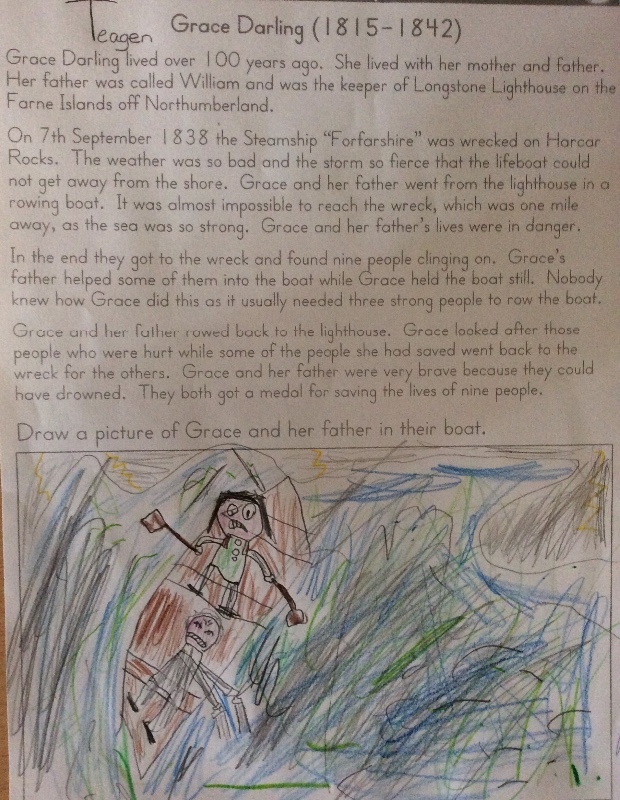 Teagen
Grace Darling (1815-1842)
Grace Darling lived over 100 years ago. She lived with her mother and father.
Her father was called William and was the keeper of Longstone Lighthouse on the
Farne Islands off Northumberland.
On 7th September 1838 the Steamship "Forfarshire" was wrecked on Harcar
Rocks. The weather was so bad and the storm so fierce that the lifeboat could
not get away from the shore. Grace and her father went from the lighthouse in a
rowing boat. It was almost impossible to reach the wreck, which was one mile
away, as the sea was so strong. Grace and her father's lives were in danger.
In the end they got to the wreck and found nine people clinging on. Grace's
father helped some of them into the boat while Grace held the boat still. Nobody
knew how Grace did this as it usually needed three strong people to row the boat.
Grace and her father rowed back to the lighthouse. Grace looked after those
people who were hurt while some of the people she had saved went back to the
wreck for the others. Grace and her father were very brave because they could
have drowned. They both got a medal for saving the lives of nine people.
Draw a picture of Grace and her father in their boat.